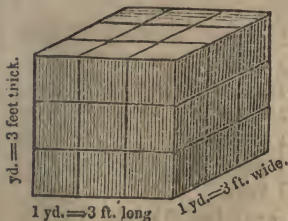 yd.=3 feet thick.
1 yd.=3 ft. long
1 yd.=3 ft. wide.